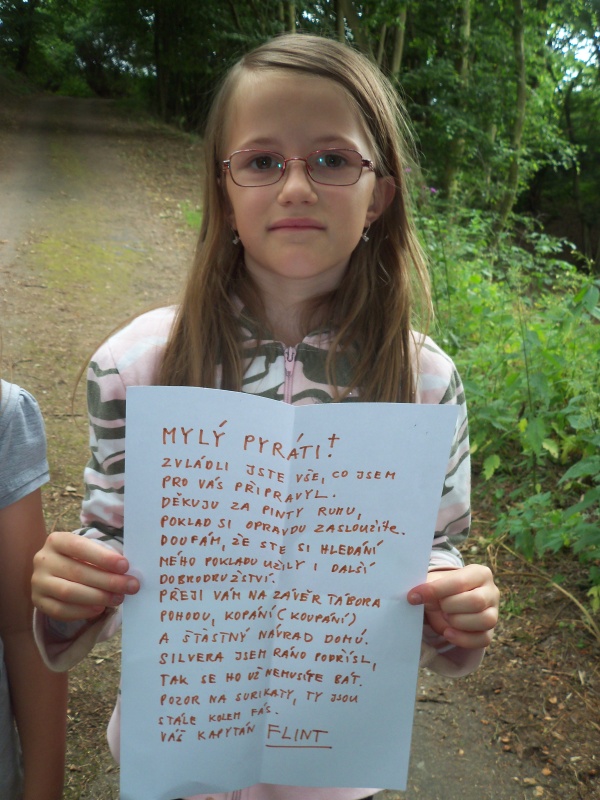 MYLÝ PYRÁTI!
ZVLÁDLI JSTE VŠE, CO JSEM
PRO VÁS PŘIPRAVYL.
DĚKUJU ZA PINTY RUMU,
POKLAD SI OPRAVDU ZASLOUŽITE.
DOUFÁM, ŽE STE SI HLEDÁNÍ
MÉHO POKLADU UŽILY I DALŠÍ
DOBRODRUŽSTVÍ.
PŘEJI VÁM NA ZÁVĚR TÁBORA
POHODU, KOPÁNÍ (KOUPÁNÍ)
A ŠŤASTNÝ NÁVRAD DOMŮ.
SILVERA JSEM RÁNO PODŘÍSL,
TAK SE HO UŽ NEMUSÍTE BÁT.
POZOR NA SURIKATY, TY JSOU
STÁLE KOLEM FÁS.
VÁŠ KAPYTÁN FLINT